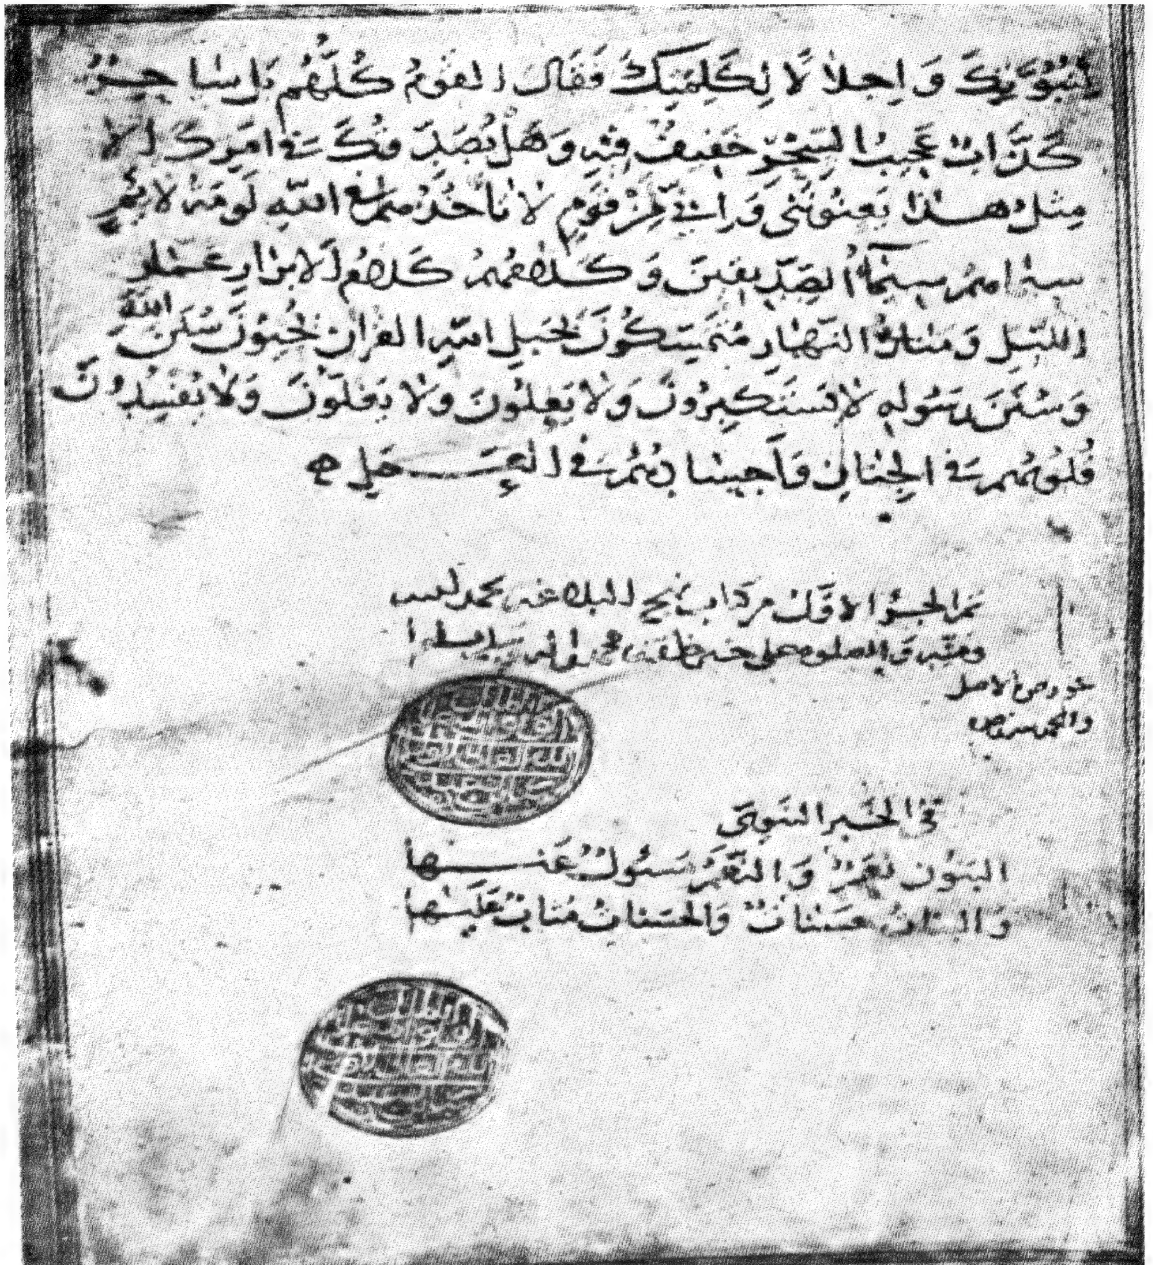 لنبوتك واجلالا لكلمتك فقال القوم كلهم بل ساحر
كذاب عجيب السحر خفيف فيه وهل يصدقك في امرك الا
مثل هذا يعنونني واني لمن قوم لا تاخذهم في الله لومة لائم
سيماهم سيما الصديقين وكلامهم كلام الابرار عمار
الليل ومنار النهار متمسكون بحبل الله القرآن يحيون سنن الله
وسنن رسوله لا يستكبرون ولا يعلون ولا يغلون ولا يفسدون
قلوبهم في الجنان واجسادهم في العمل
تم الجزء الاول من كتاب نهج البلاغة بحمد الله
ومنه والصلوة على خير خلقه محمد وآله
الاصل
في الخبر النبوي
البنون نعم والنعم مسئول عنها
والبنات حسنات والحسنات مثاب عليها